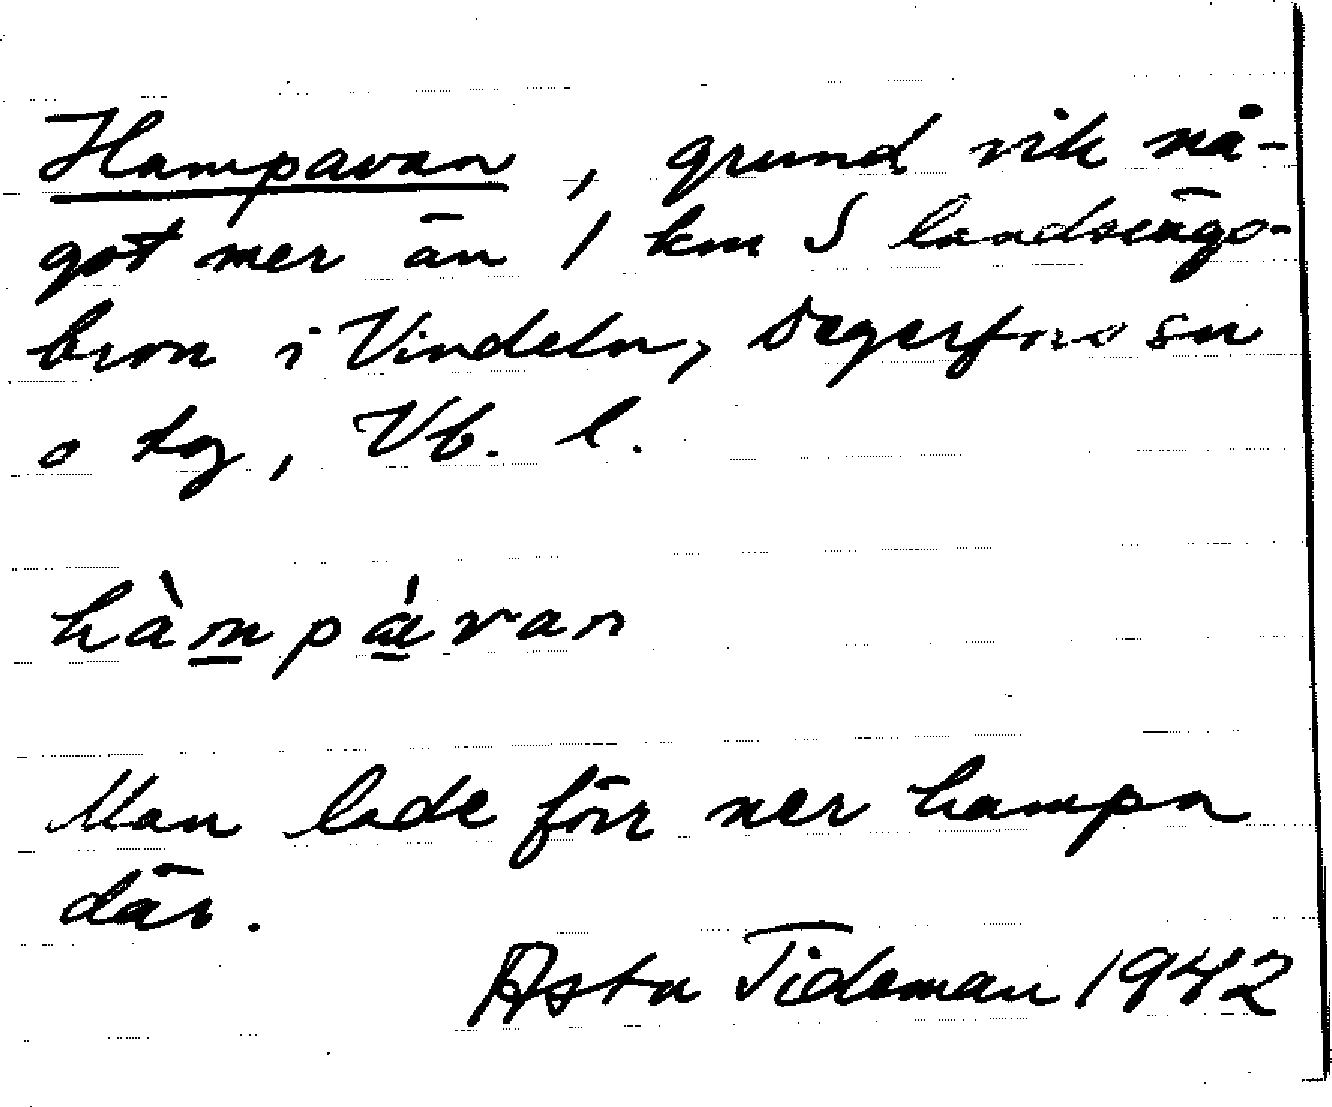 Hampavan, grund vik nå-
got mer än 1 km S landsvägs-
bron i Vindeln, Degerfors sn
o tg, Vb. l.
hàmpá̱van
Man lade förr ner hampa
där.
Asta Tideman 1942